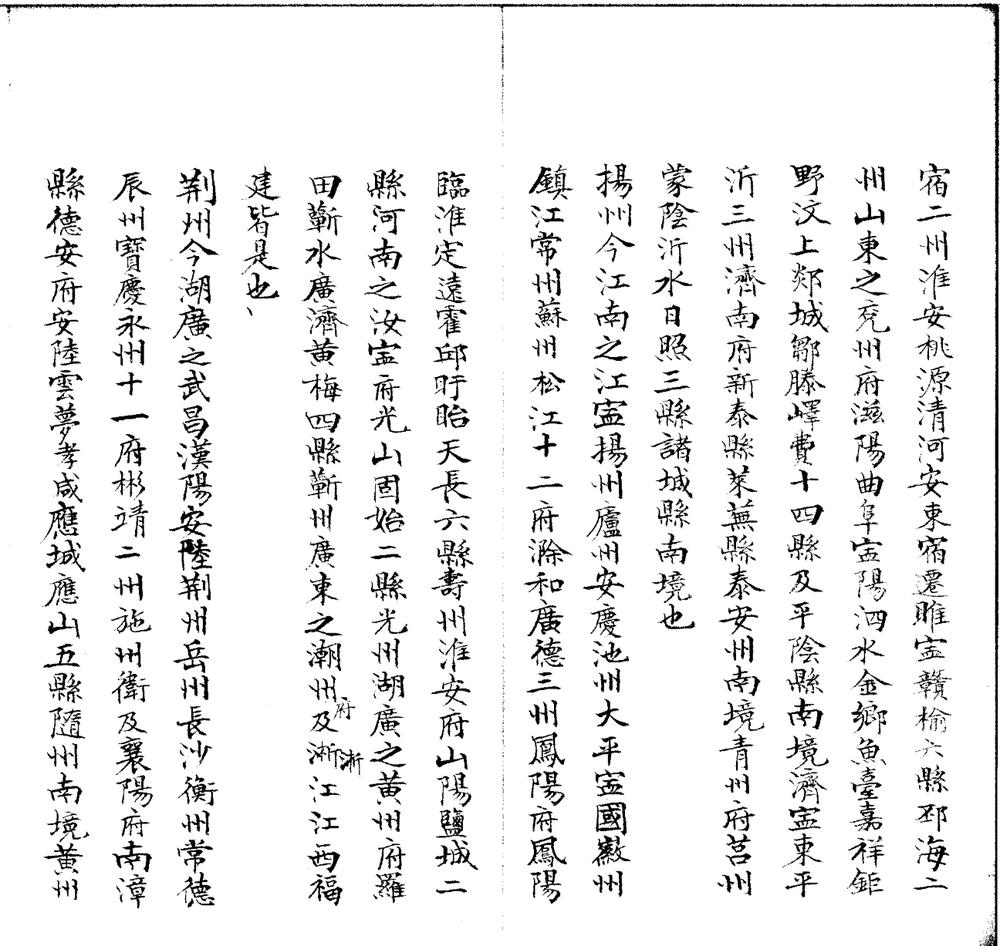 宿二州淮安桃源清河安東宿遷睢寍贛榆六縣邳海二
州山東之兗州府滋陽曲阜寍陽泗水金鄉魚臺嘉祥鉅
野汶上郯城鄒滕嶧費十四縣及平陰縣南境濟寍東平
沂三州濟南府新泰縣萊蕪縣泰安州南境青州府莒州
蒙陰沂水日照三縣諸城縣南境也
揚州今江南之江寍揚州廬州安慶池州大平寍國徽州
鎮江常州蘇州松江十二府滁和廣德三州鳳陽府鳳陽
臨淮定遠霍邱盱眙天長六縣壽州淮安府山陽鹽城二
縣河南之汝寍府光山固始二縣光州湖廣之黃州府羅
田蘄水廣濟黃梅四縣蘄州廣東之潮州府及淅浙江江西福
建皆是也
荆州今湖廣之武昌漢陽安陸荆州岳州長沙衡州常德
辰州寶慶永州十一府彬靖二州施州衛及襄陽府南漳
縣德安府安陸雲夢孝咸應城應山五縣隨州南境黃州